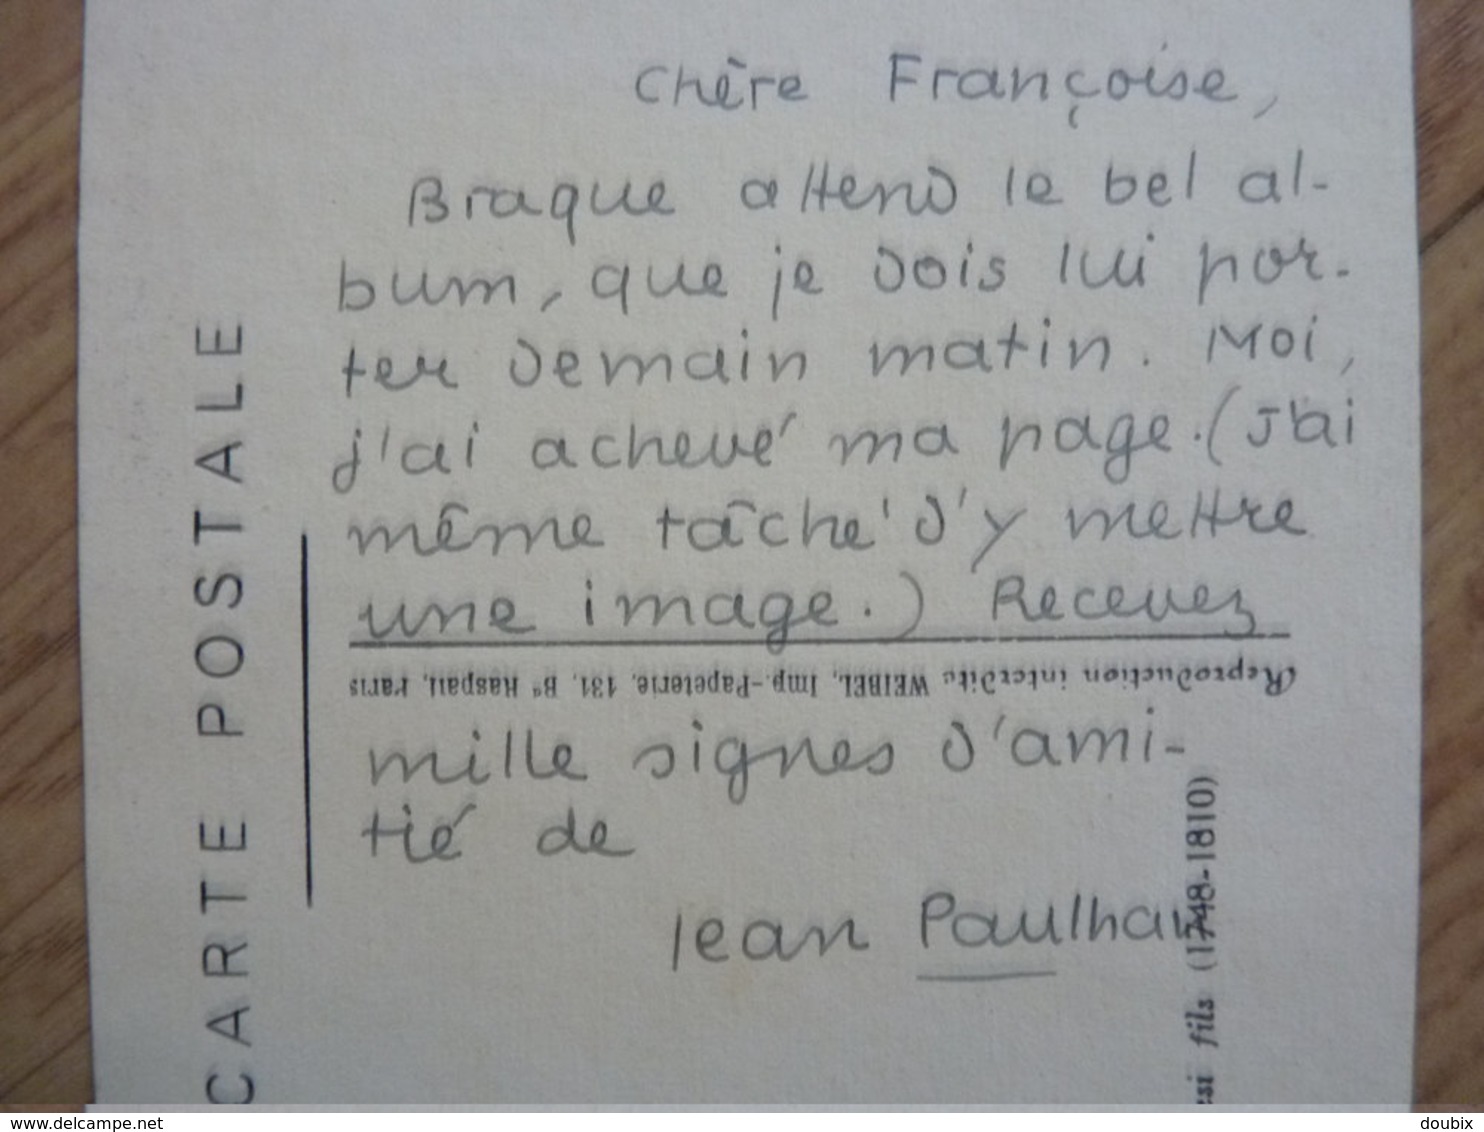 Chère Françoise,
Braque attend le bel al-
bum, que je dois lui por-
ter demain matin. Moi,
j'ai achevé ma page. (J'ai
même tâché d'y mettre
une image.) Recevez
Reproduction interdite WEIBEL, Imp.-Papeterie, 131, Bd Raspail, Paris
mille signes d'ami-
tié de
Jean Paulhan
CARTE POSTALE
ssi fils (1748-1810)
www.delcampe.net
doubix